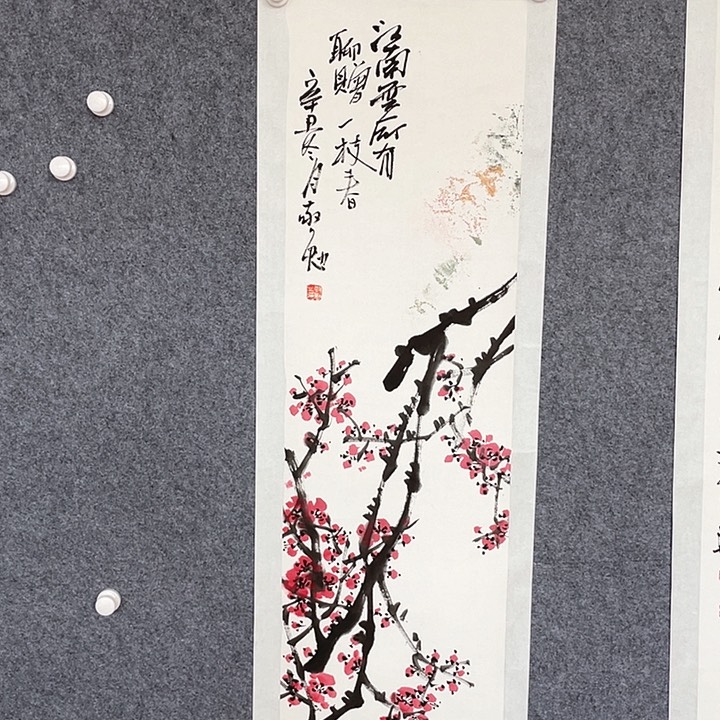 江南無所有
聊贈一枝春
辛丑冬月